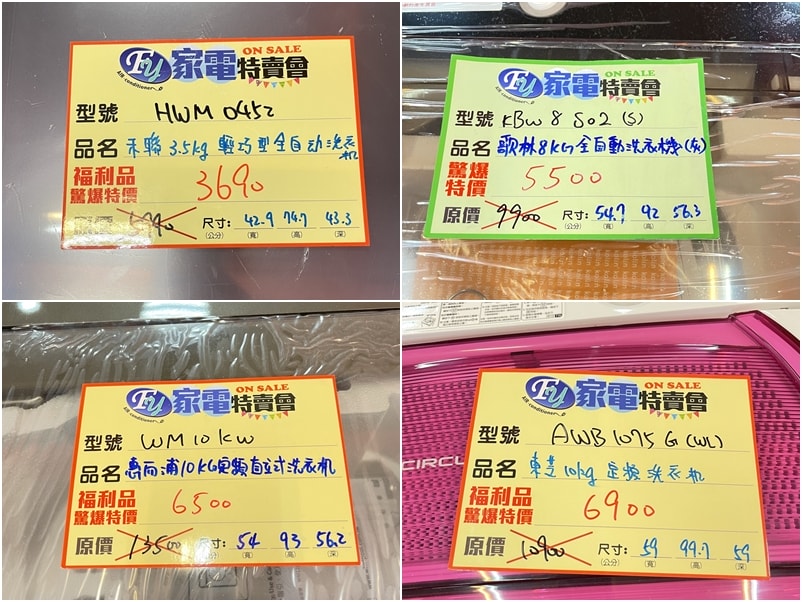 FU 家電特賣會 ON SALE
AIR conditioner
型號 HWM 0452
品名 禾聯 3.5kg 輕巧型全自动洗衣机
福利品
驚爆特價 3690
原價 5990 尺寸: 42.9 74.7 43.3
(公分) (寬) (高) (深)
FU 家電特賣會 ON SALE
AIR conditioner
型號 KBW 8 S02 (S)
品名 歌林8KG全自動洗衣機(灰)
驚爆
特價 5500
原價 9900 尺寸: 54.7 92 56.3
(公分) (寬) (高) (深)
FU 家電特賣會 ON SALE
AIR conditioner
型號 WM10KW
品名 惠而浦10KG変頻直立式洗衣机
福利品
驚爆特價 6500
原價 13500 尺寸: 54 93 56.2
(公分) (寬) (高) (深)
FU 家電特賣會 ON SALE
AIR conditioner
型號 AWB1075G(WL)
品名 東芝10kg 定頻洗衣机
福利品
驚爆特價 6900
原價 10900 尺寸: 59 99.7 59
(公分) (寬) (高) (深)
CIRCU